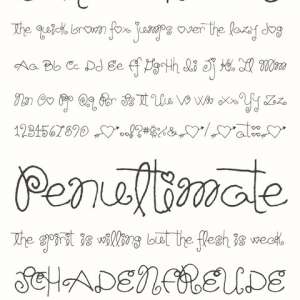 the quick brown fox jumps over the lazy dog
Aa Bb Cc Dd Ee Ff Gg Hh Ii Jj Kk Ll Mm
Nn Oo Pp Qq Rr Ss Tt Uu Vv Ww Xx Yy Zz
1234567890
Penultimate
the spirit is willing but the flesh is weak
SCHADENFREUDE